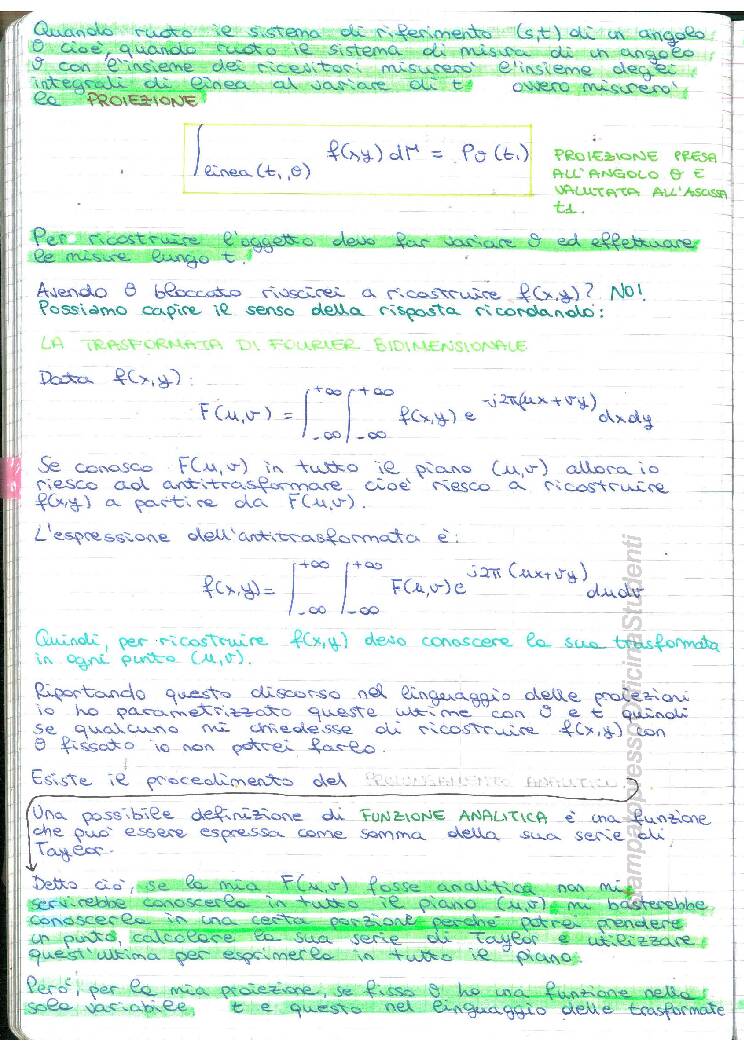 Quando ruoto il sistema di riferimento (s,t) di un angolo
θ cioè, quando ruoto il sistema di misura di un angolo
θ con l'insieme dei ricevitori misurerò l'insieme degli
integrali di linea al variare di t ovvero misurerò
la PROIEZIONE
∫linea(t₁,θ) f(x,y) dM = Pθ(t₁)
PROIEZIONE PRESA
ALL'ANGOLO θ E
VALUTATA ALL'ASCISSA
t1.
Per ricostruire l'oggetto devo far variare θ ed effettuare
le misure lungo t.
Avendo θ bloccato riuscirei a ricostruire f(x,y)? NO!
Possiamo capire il senso della risposta ricordando:
LA TRASFORMATA DI FOURIER BIDIMENSIONALE
Data f(x,y):
F(u,v) = ∫-∞+∞ ∫-∞+∞ f(x,y) e^-j2π(ux+vy) dxdy
Se conosco F(u,v) in tutto il piano (u,v) allora io
riesco ad antitrasformare cioè riesco a ricostruire
f(x,y) a partire da F(u,v).
L'espressione dell'antitrasformata è:
f(x,y)= ∫-∞+∞ ∫-∞+∞ F(u,v) e^j2π(ux+vy) dudv
Quindi, per ricostruire f(x,y) devo conoscere la sua trasformata
in ogni punto (u,v).
Riportando questo discorso nel linguaggio delle proiezioni
io ho parametrizzato queste ultime con θ e t quindi
se qualcuno mi chiedesse di ricostruire f(x,y) con
θ fissato io non potrei farlo.
Esiste il procedimento del PROLUNGAMENTO ANALITICO
Una possibile definizione di FUNZIONE ANALITICA è una funzione
che può essere espressa come somma della sua serie di
Taylor.
Detto ciò, se la mia F(u,v) fosse analitica non mi
servirebbe conoscerla in tutto il piano (u,v) mi basterebbe
conoscerla in una certa porzione perché potrei prendere
un punto, calcolare la sua serie di Taylor e utilizzare
quest'ultima per esprimerla in tutto il piano.
Però, per la mia proiezione, se fisso θ ho una funzione nella
sola variabile t e questo nel linguaggio delle trasformate
Stampato presso OfficinaStudenti